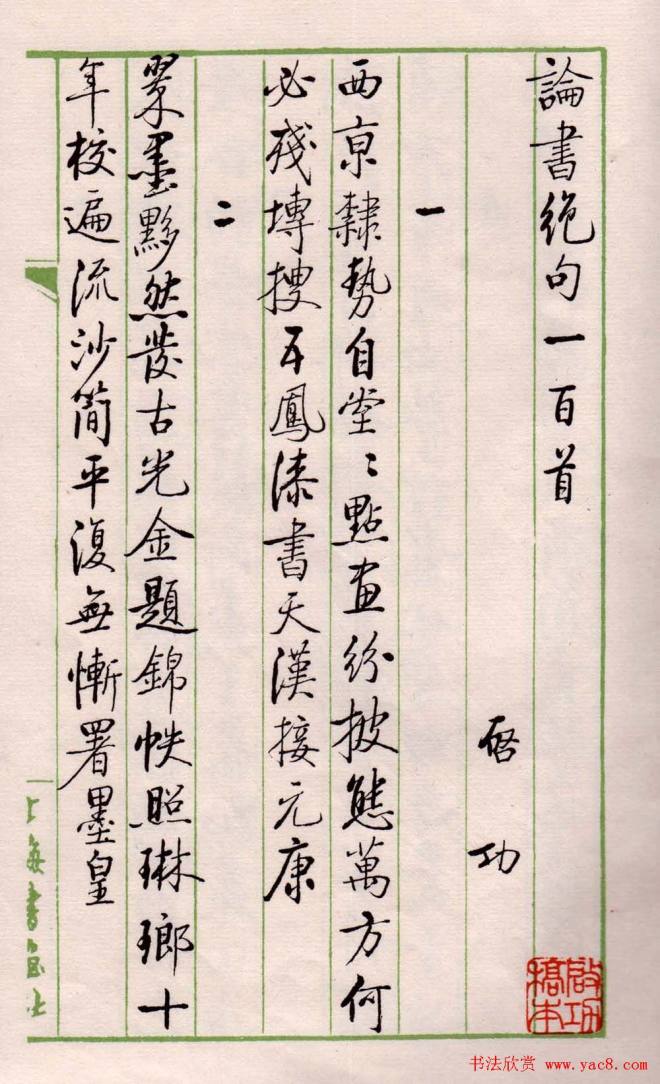 論書絕句一百首
啓功
一
西京隸勢自堂〻點畫紛披態萬方何
必殘塼搜五鳳漆書天漢接元康
二
翠墨黟然發古光金題錦帙照琳瑯十
年校遍流沙簡平復無慚署墨皇
上海書畫社
啟功
稿本
书法欣赏 www.yac8.com